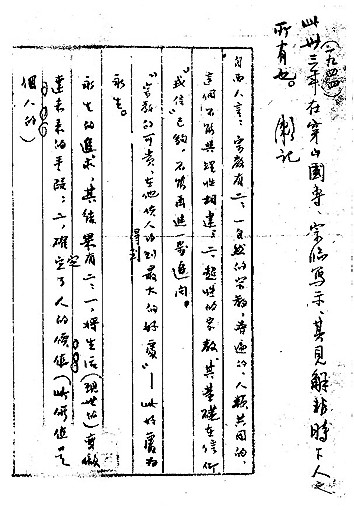 此卅三年在穿山國專、宗臨寫示、其見解非時下人之
（一九四四）
所有也。 記
有西人言：宗教有二：一自然的宗教，普遍的，人類共同的，
這個不能與理性相違；二超性的宗教，其基礎在信仰
“我信已夠，不能再進一步追問。”
“宗教的可貴，在他使人得到最大的好處”——此好處為
得到
永生。
永生的追求，其結果有二：一，將生活（現世的）變做
達未來的手段；二，確定了人的價值（此價值是
個人的）